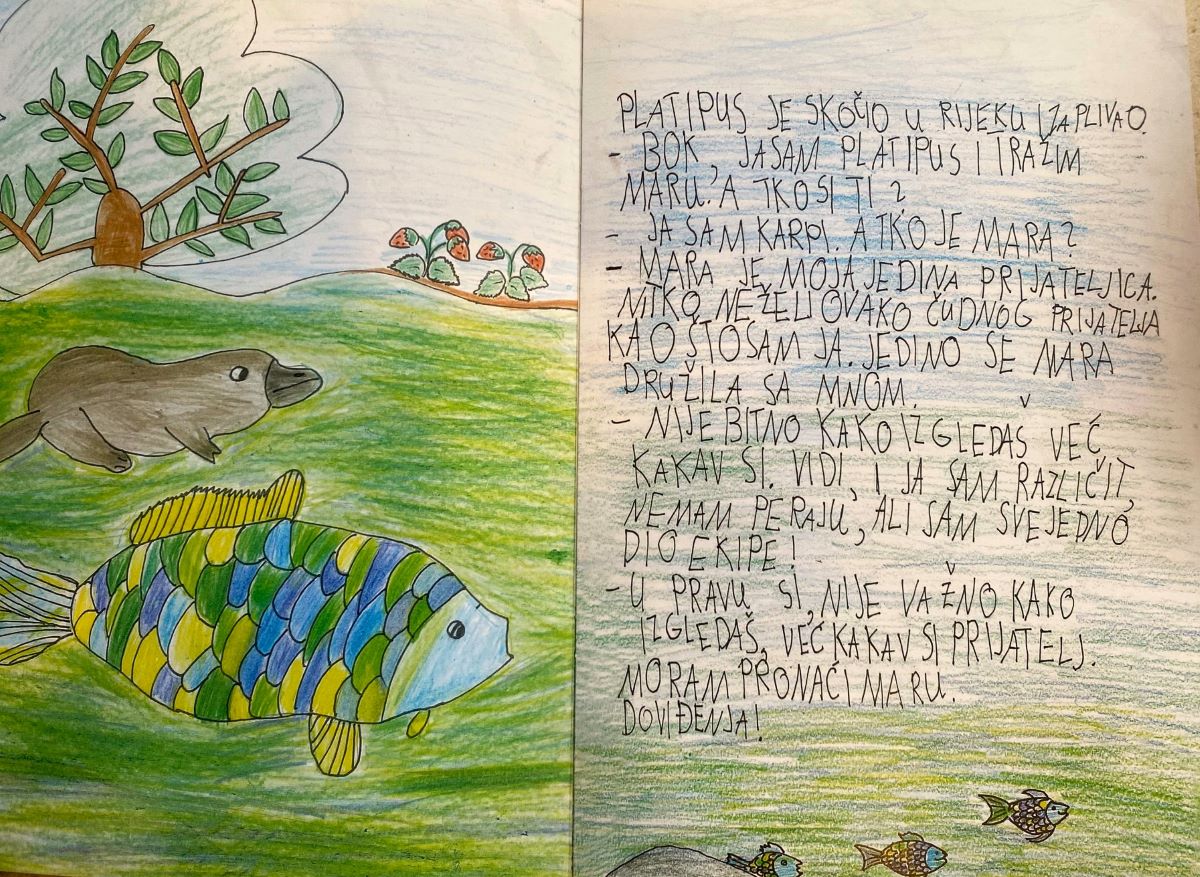 PLATIPUS JE SKOČIO U RIJEKU I ZAPLIVAO.
- BOK, JA SAM PLATIPUS I TRAŽIM
MARU. A TKO SI TI?
- JA SAM KARPI. A TKO JE MARA?
- MARA JE MOJA JEDINA PRIJATELJICA.
NITKO NE ŽELI OVAKO ČUDNOG PRIJATELJA
KAO ŠTO SAM JA. JEDINO SE MARA
DRUŽILA SA MNOM.
- NIJE BITNO KAKO IZGLEDAŠ VEČ
KAKAV SI. VIDI, I JA SAM RAZLIČIT,
NEMAM PERAJU, ALI SAM SVEJEDNO
DIO EKIPE!
- U PRAVU SI, NIJE VAŽNO KAKO
IZGLEDAŠ, VEĆ KAKAV SI PRIJATELJ.
MORAM PRONAĆI MARU.
DOVIĐENJA!